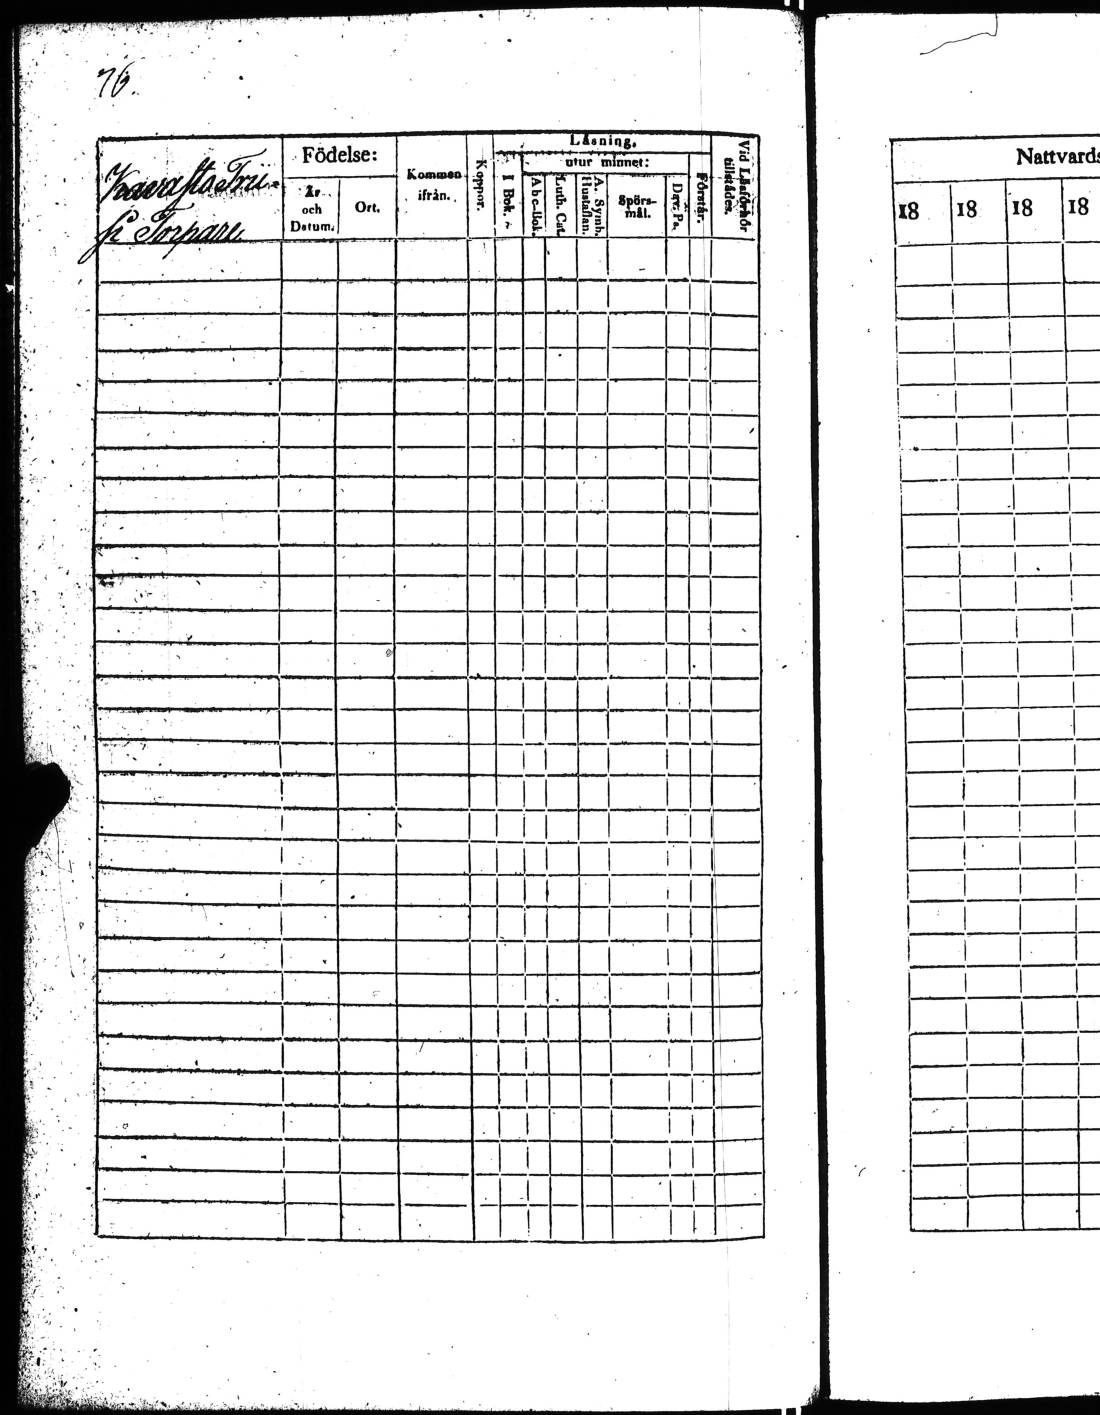 76.
Torpare
Födelse:
År
och
Datum.
Ort.
Kommen
ifrån.
Koppor.
Läsning.
I Bok.
utur minnet:
Abc-Bok.
Luth. Cat.
A. Symb.
Hustaflan.
Spörs-
mål.
Dav. Ps.
Förstår.
Vid Läsförhör
tillstädes.
Nattvards
18 18 18 18